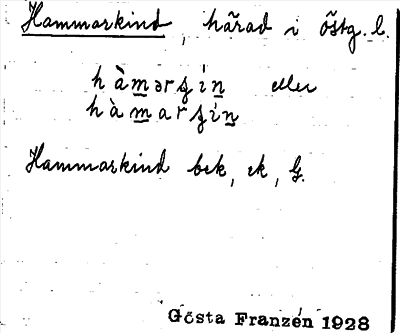 Hammarkind, härad i östg. l.
hàmərʂín eller
hàmarʂín
Hammarkind bek, ek, G.
Gösta Franzén 1928